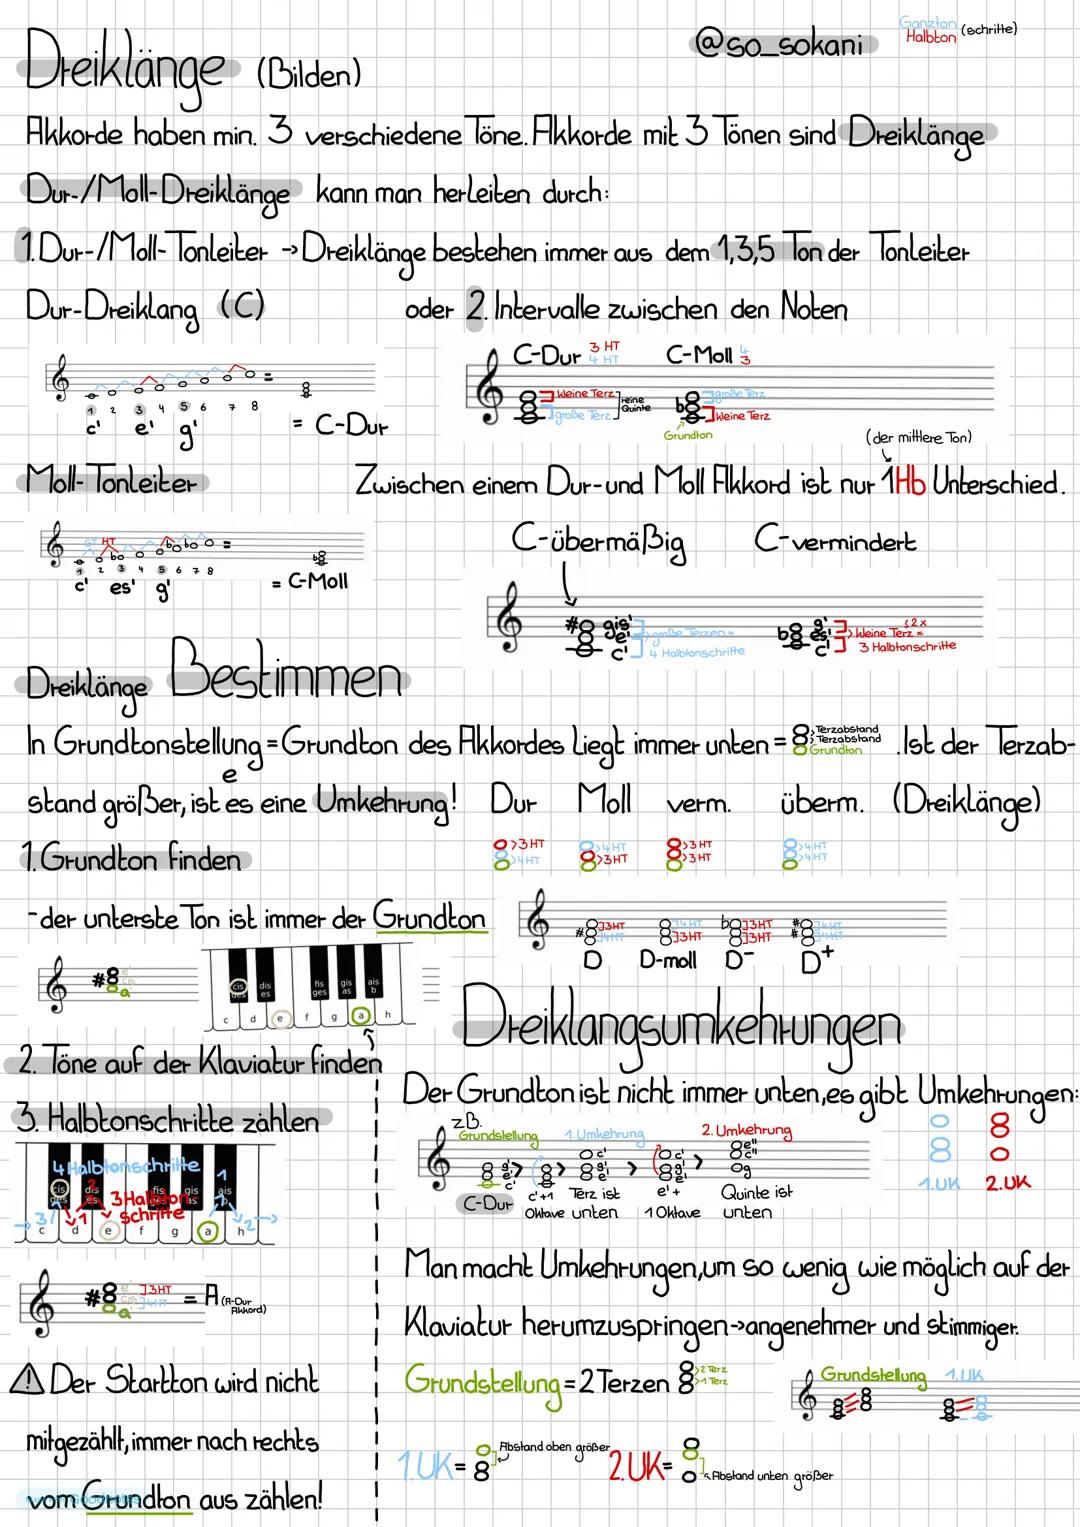 Dreiklänge (Bilden)
@so_sokani
Ganzton
Halbton (schritte)
Akkorde haben min. 3 verschiedene Töne. Akkorde mit 3 Tönen sind Dreiklänge
Dur-/Moll-Dreiklänge kann man herleiten durch:
1. Dur-/Moll-Tonleiter → Dreiklänge bestehen immer aus dem 1,3,5 Ton der Tonleiter
Dur-Dreiklang (C)
oder 2. Intervalle zwischen den Noten
1 2 3 4 5 6 7 8
c' e' g'
= C-Dur
C-Dur 3 HT
4 HT
C-Moll 4
3
kleine Terz
große Terz
reine
Quinte
große Terz
kleine Terz
Grundton
(der mittlere Ton)
Moll-Tonleiter
Zwischen einem Dur- und Moll Akkord ist nur 1Hb Unterschied.
GT HT
1 2 3 4 5 6 7 8
c' es' g'
= C-Moll
C-übermäßig
C-vermindert
gis'
e'
c'
große Terzen =
4 Halbtonschritte
g'
es'
c'
2x
kleine Terz =
3 Halbtonschritte
Dreiklänge Bestimmen
In Grundtonstellung = Grundton des Akkordes liegt immer unten = Terzabstand
Terzabstand
Grundton
. Ist der Terzab-
e
stand größer, ist es eine Umkehrung! Dur Moll verm. überm. (Dreiklänge)
1. Grundton finden
>3HT
>4HT
>4HT
>3HT
>3HT
>3HT
>4HT
>4HT
- der unterste Ton ist immer der Grundton
3HT
4HT
4HT
3HT
3HT
3HT
4HT
4HT
D D-moll D- D+
a
cis
des
dis
es
fis
ges
gis
as
ais
b
c d e f g a h
Dreiklangsumkehrungen
2. Töne auf der Klaviatur finden
Der Grundton ist nicht immer unten, es gibt Umkehrungen:
3. Halbtonschritte zählen
zB.
Grundstellung
1. Umkehrung
2. Umkehrung
1.UK 2.UK
C-Dur
c'+1
Oktave
Terz ist
unten
e'+
1 Oktave
Quinte ist
unten
4 Halbtonschritte
3 Halbton-
schritte
c d e f g a h
Man macht Umkehrungen, um so wenig wie möglich auf der
Klaviatur herumzuspringen → angenehmer und stimmiger.
3HT
4HT
= A (A-Dur
Akkord)
⚠ Der Startton wird nicht
mitgezählt, immer nach rechts
vom Grundton aus zählen!
Grundstellung = 2 Terzen
>2 Terz
>1 Terz
Grundstellung 1.UK
1.UK = Abstand oben größer
2.UK = Abstand unten größer